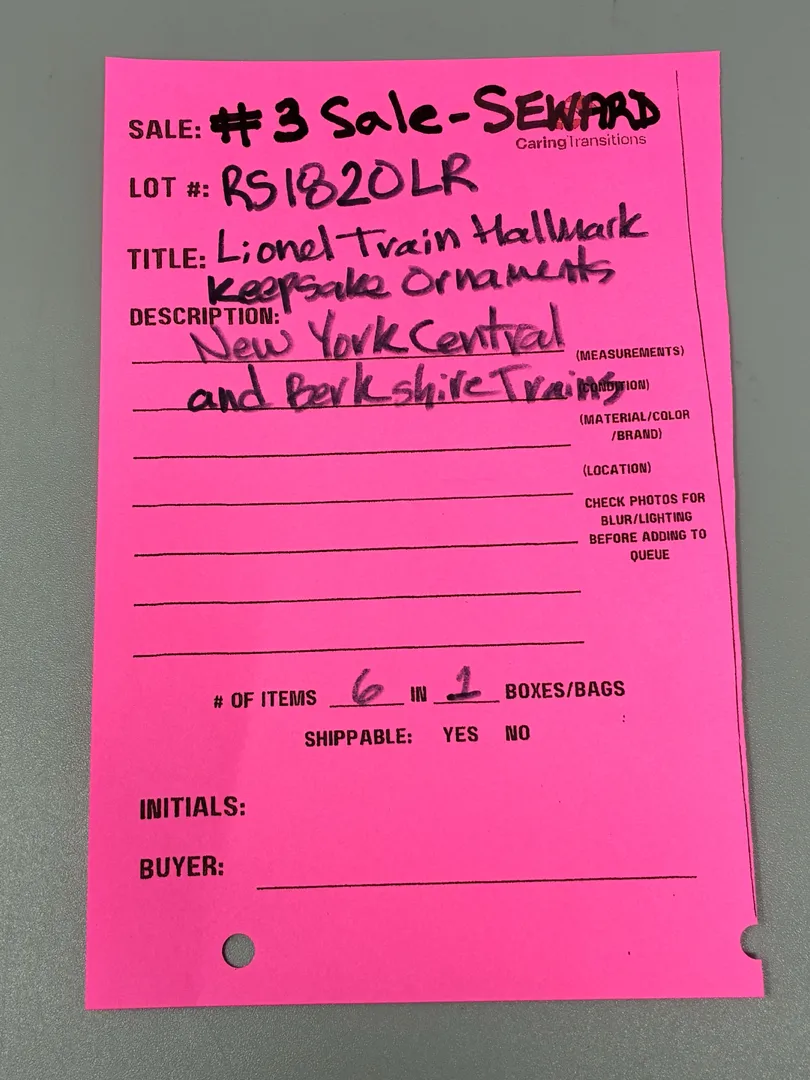 SALE: #3 Sale - SEWARD
CaringTransitions
LOT #: RS1820LR
TITLE: Lionel Train Hallmark
Keepsake Ornaments
DESCRIPTION:
New York Central
(MEASUREMENTS)
and Berkshire Trains
(CONDITION)
(MATERIAL/COLOR
/BRAND)
(LOCATION)
CHECK PHOTOS FOR
BLUR/LIGHTING
BEFORE ADDING TO
QUEUE
# OF ITEMS 6 IN 1 BOXES/BAGS
SHIPPABLE: YES NO
INITIALS:
BUYER: